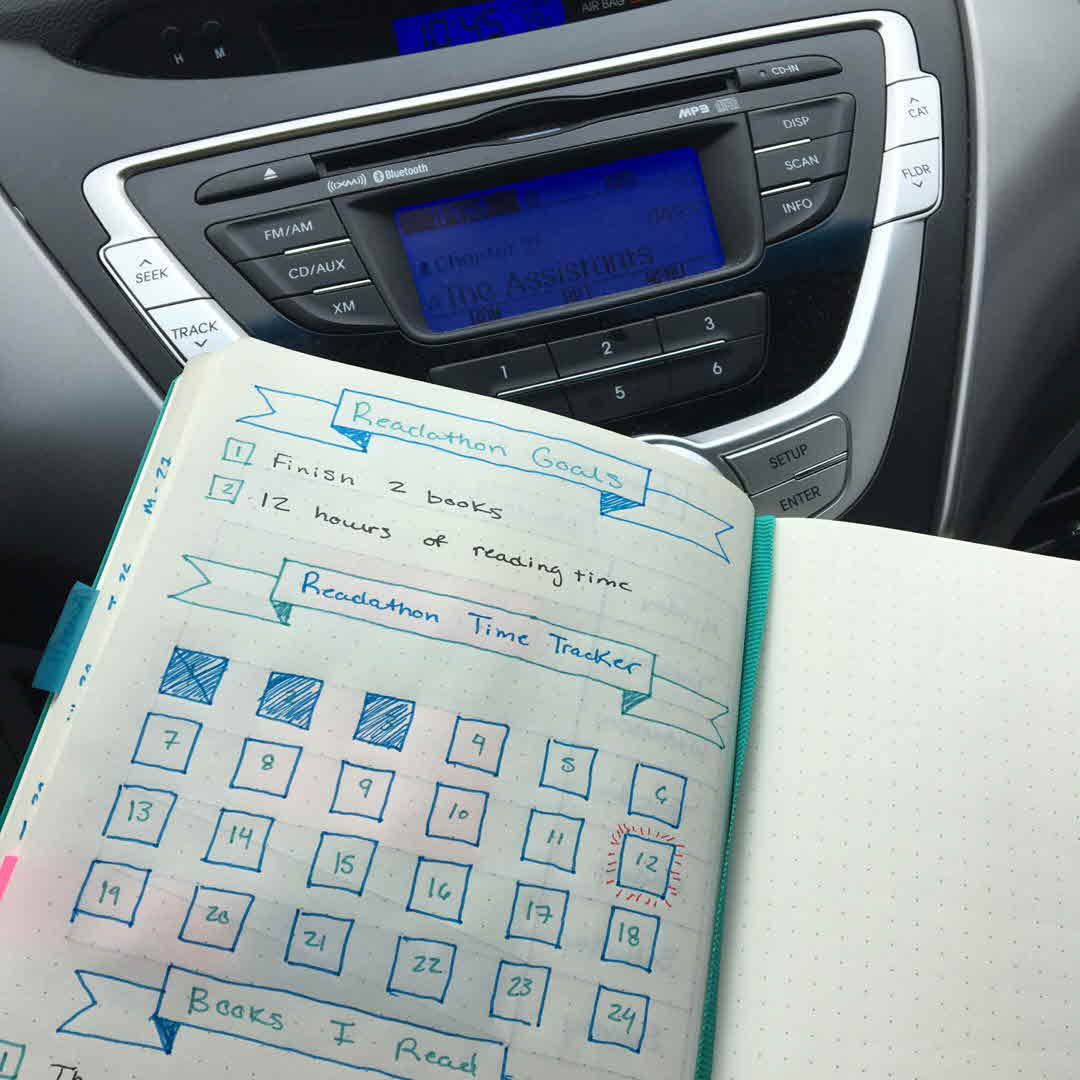 AIR BAG
10:45
H M
CD-IN
MP3
XM Bluetooth
DISP
CAT
FM/AM
SCAN
FLDR
SEEK
CD/AUX
INFO
Chapter
XM
The Assistants
MENU
TRACK
1 2 3
5 6
SETUP
ENTER
Readathon Goals
1 Finish 2 books
2 12 hours of reading time
Readathon Time Tracker
4 5 6
7 8 9 10 11 12
13 14 15 16 17 18
19 20 21 22 23 24
Books I Read
1 Th